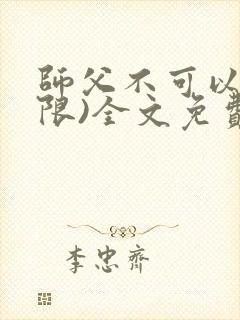 師父不可以
限)全文免費
李忠齊